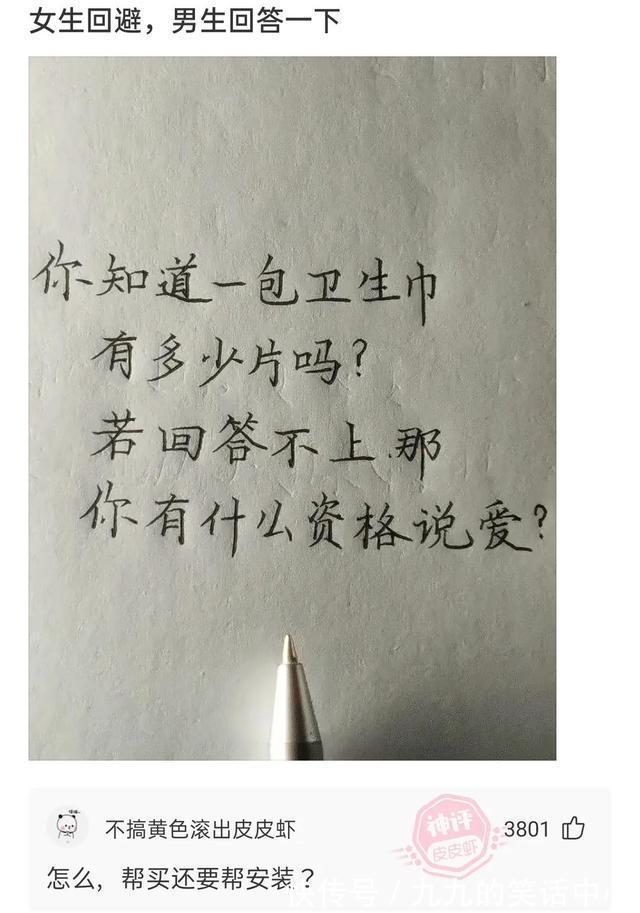 女生回避，男生回答一下
你知道一包卫生巾
有多少片吗？
若回答不上.那
你有什么资格说爱？
不搞黄色滚出皮皮虾
神评
皮皮虾
3801
怎么，帮买还要帮安装？
快传号 / 九九的笑话中心